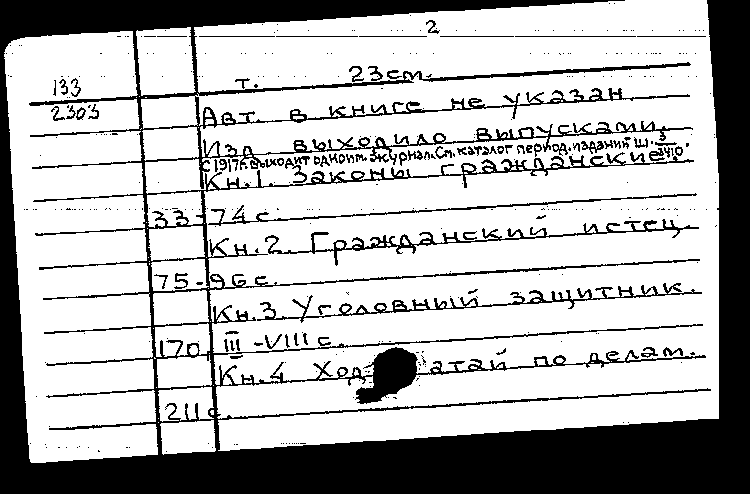 2
133 т. 23см.
2303 Авт. в книге не указан.
Изд. выходило выпусками,
с 1917г. выходит одноим. журнал. См. каталог период. изданий Ш. 3/340.
Кн.1. Законы гражданские.
33-74 с.
Кн.2. Гражданский истец.
75-96 с.
Кн.3. Уголовный защитник.
170, III -VIII с.
Кн.4 Ход атай по делам.
211 с.